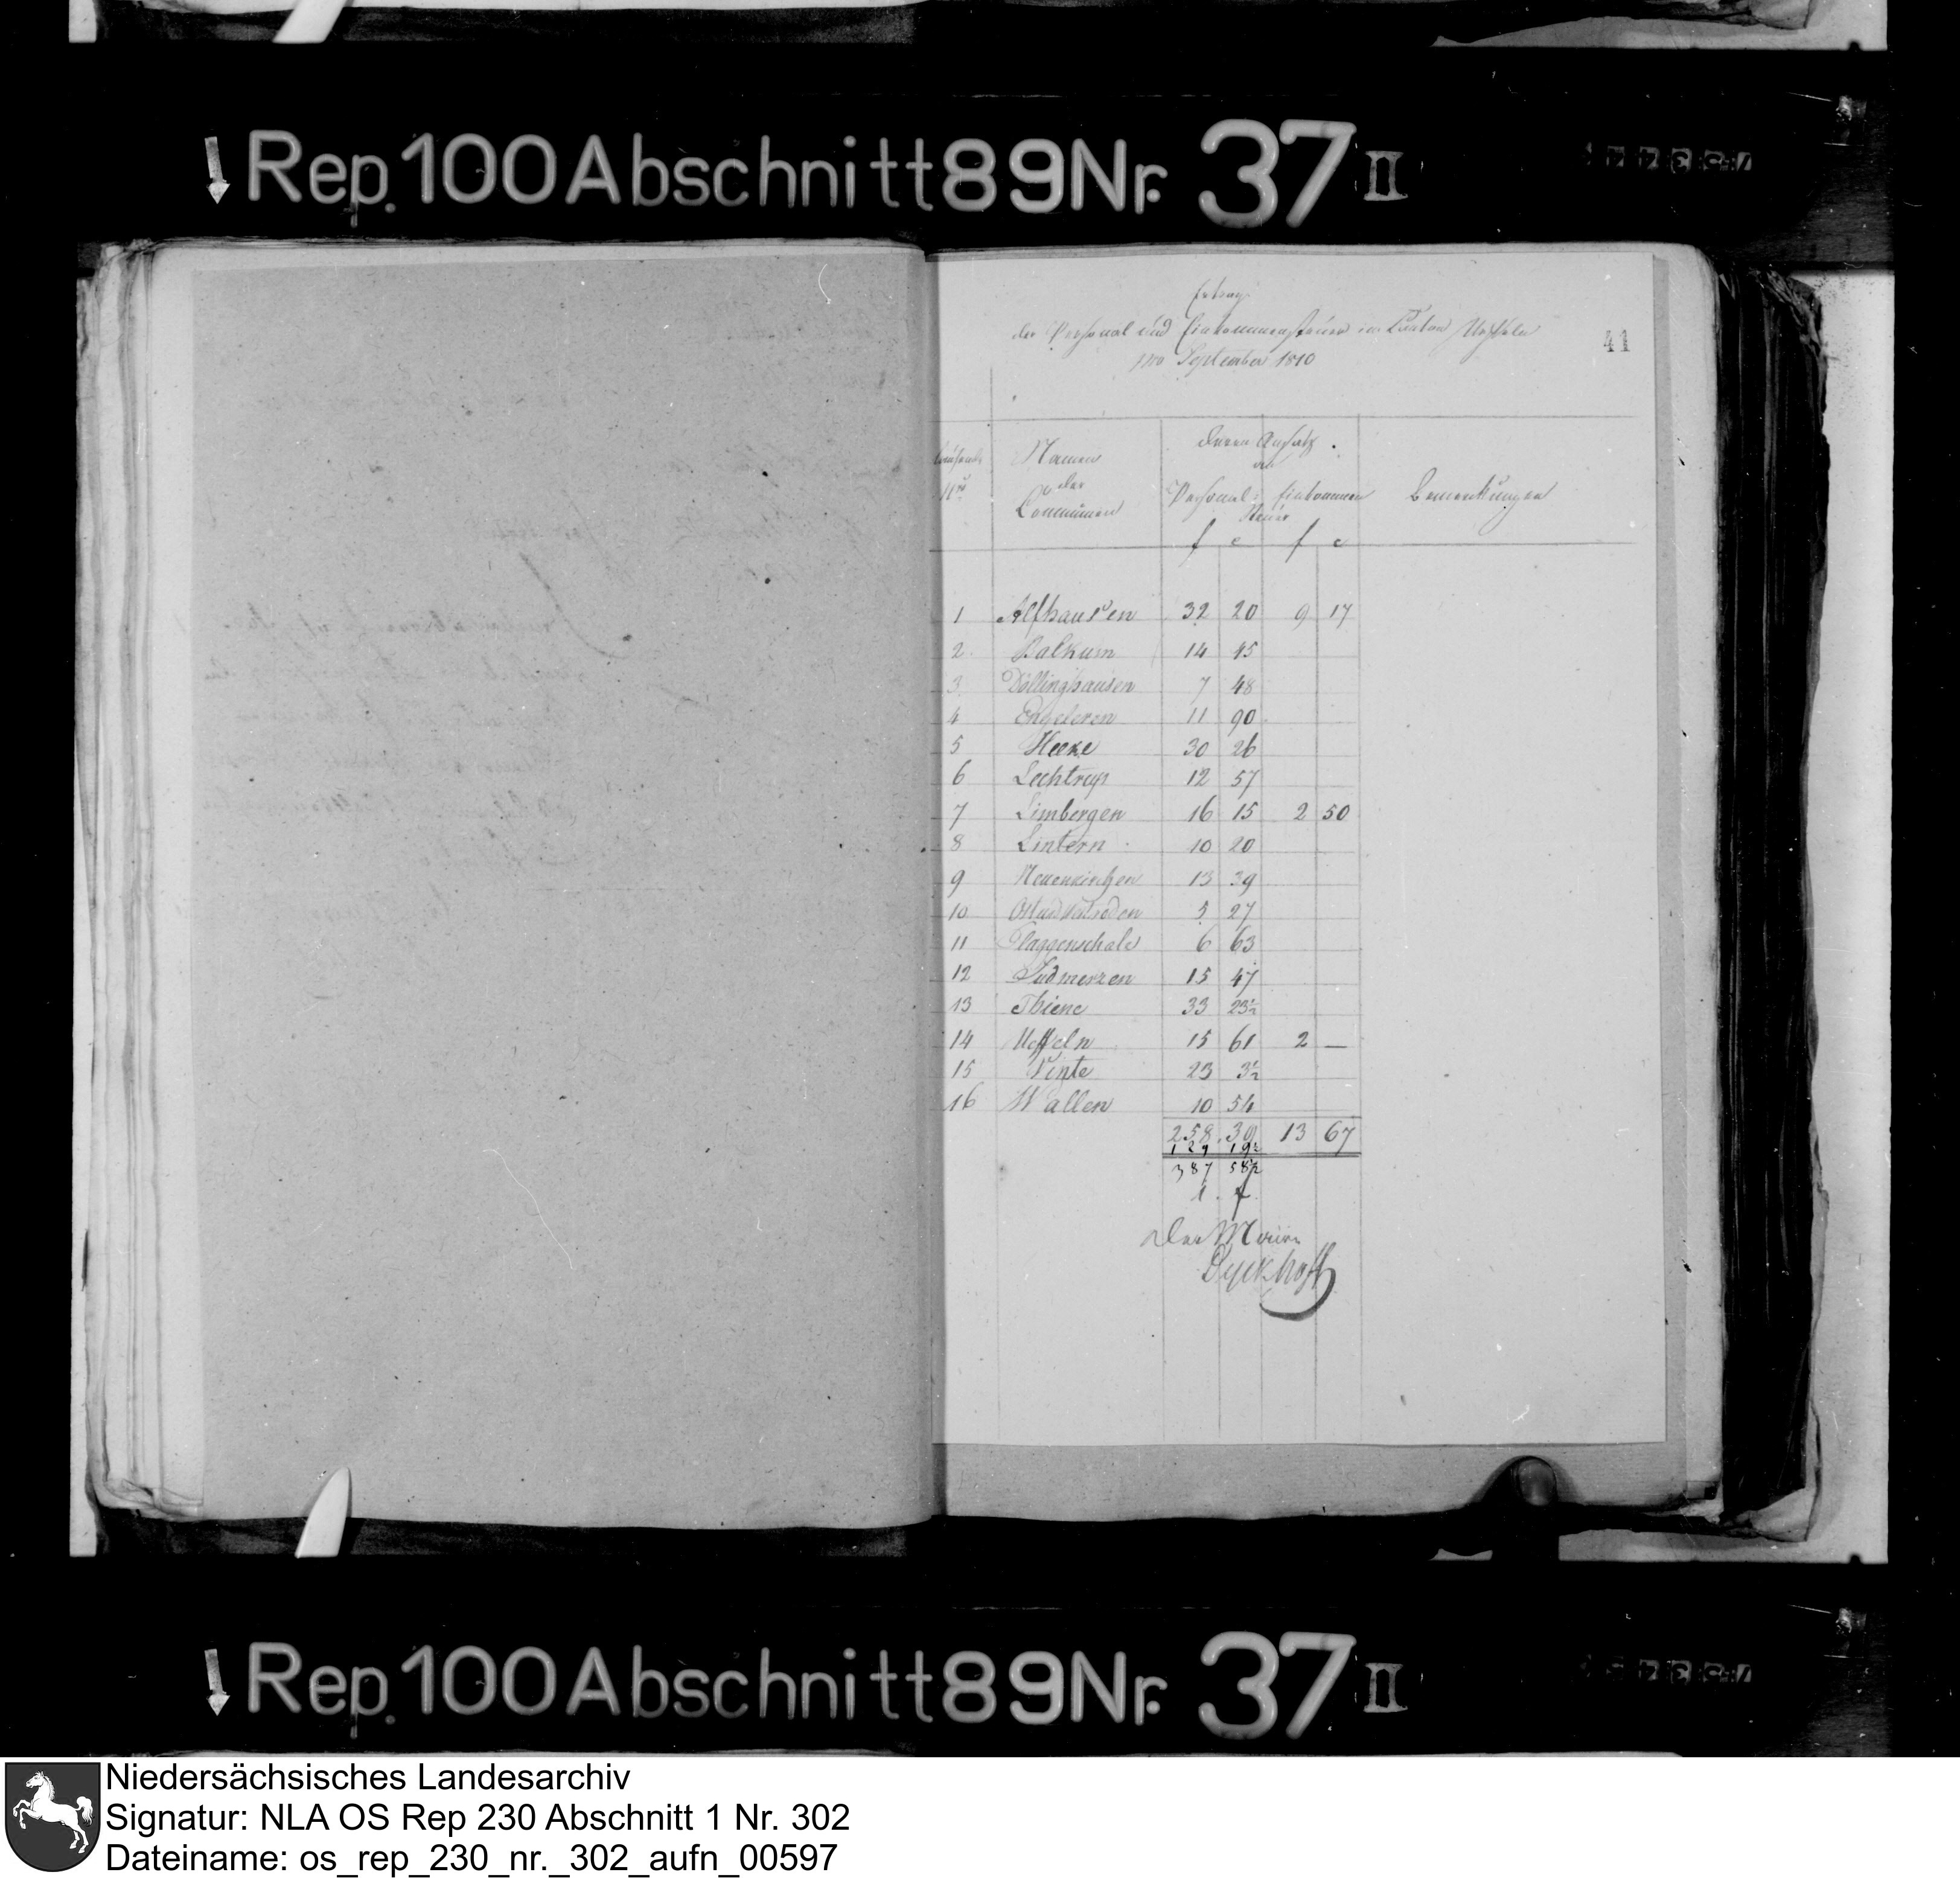 Rep.100 Abschnitt 89 Nr. 37 II
41
Ertrag
der Personal und Einkommensteuer im Canton Ueffeln
pro September 1810
Laufende Nro | Namen der Communen | deren Ansatz an Personal- Einkommen Steuer | Bemerkungen
f c f c
1 Alfhausen 32 20 9 17
2 Balkum 14 45
3 Döllinghausen 7 48
4 Engeleren 11 90
5 Heeke 30 26
6 Lechtrup 12 57
7 Limbergen 16 15 2 50
8 Lintern 10 20
9 Neuenkirchen 13 39
10 5 27
11 Plaggenschale 6 63
12 Südmerzen 15 47
13 Thiene 33 23½
14 Ueffeln 15 61 2 —
15 Vinte 23 3½
16 Wallen 10 54
258 30 13 67
129 19½
387 58½
Der Maire
Dyckhoff
Rep.100 Abschnitt 89 Nr. 37 II
Niedersächsisches Landesarchiv
Signatur: NLA OS Rep 230 Abschnitt 1 Nr. 302
Dateiname: os_rep_230_nr._302_aufn_00597